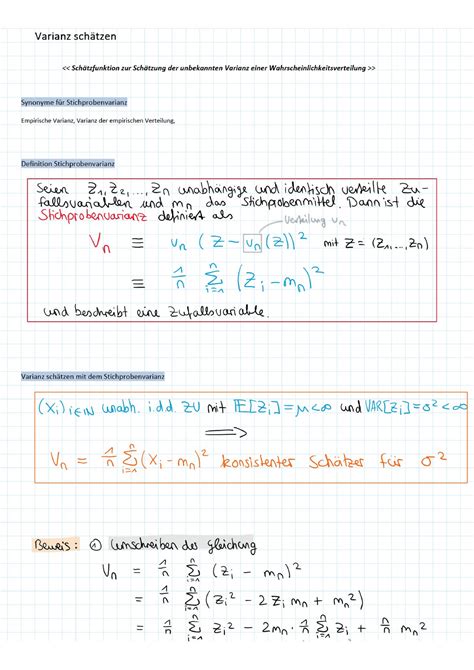 Varianz schätzen
<< Schätzfunktion zur Schätzung der unbekannten Varianz einer Wahrscheinlichkeitsverteilung >>
Synonyme für Stichprobenvarianz
Empirische Varianz, Varianz der empirischen Verteilung,
Definition Stichprobenvarianz
Seien Z₁, Z₂, ..., Zn unabhängige und identisch verteilte Zu-
fallsvariablen und mn das Stichprobenmittel. Dann ist die
Stichprobenvarianz definiert als
Verteilung νn
Vn ≡ νn (Z − νn(Z))² mit Z = (Z₁, ..., Zn)
≡ 1/n Σ_{i=1}^{n} (Zi − mn)²
und beschreibt eine Zufallsvariable.
Varianz schätzen mit dem Stichprobenvarianz
(Xi)i∈ℕ unabh. i.d.d. ZV mit 𝔼[Zi] = μ < ∞ und VAR[Zi] = σ² < ∞
⟹
Vn = 1/n Σ_{i=1}^{n} (Xi − mn)² konsistenter Schätzer für σ²
Beweis: ① Umschreiben der Gleichung
Vn = 1/n Σ_{i=1}^{n} (Zi − mn)²
= 1/n Σ_{i=1}^{n} (Zi² − 2 Zi mn + mn²)
= 1/n Σ_{i=1}^{n} Zi² − 2mn · 1/n Σ_{i=1}^{n} Zi + n/n mn²